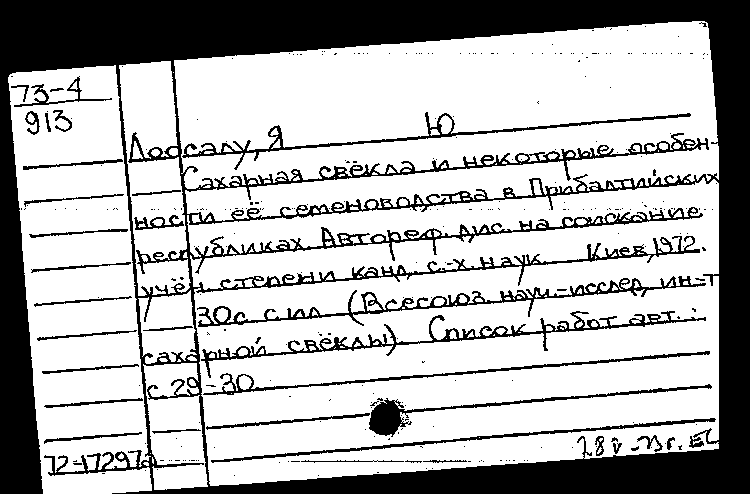 73-4
913
Лоосалу, Я Ю
Сахарная свёкла и некоторые особен-
ности её семеноводства в Прибалтийских
республиках. Автореф. дис. на соискание
учён степени канд. с.-х. наук. Киев, 1972.
30с. с ил. (Всесоюз. науч.-исслед. ин-т
сахарной свёклы). Список работ авт.:
с. 29-30.
72-17297а